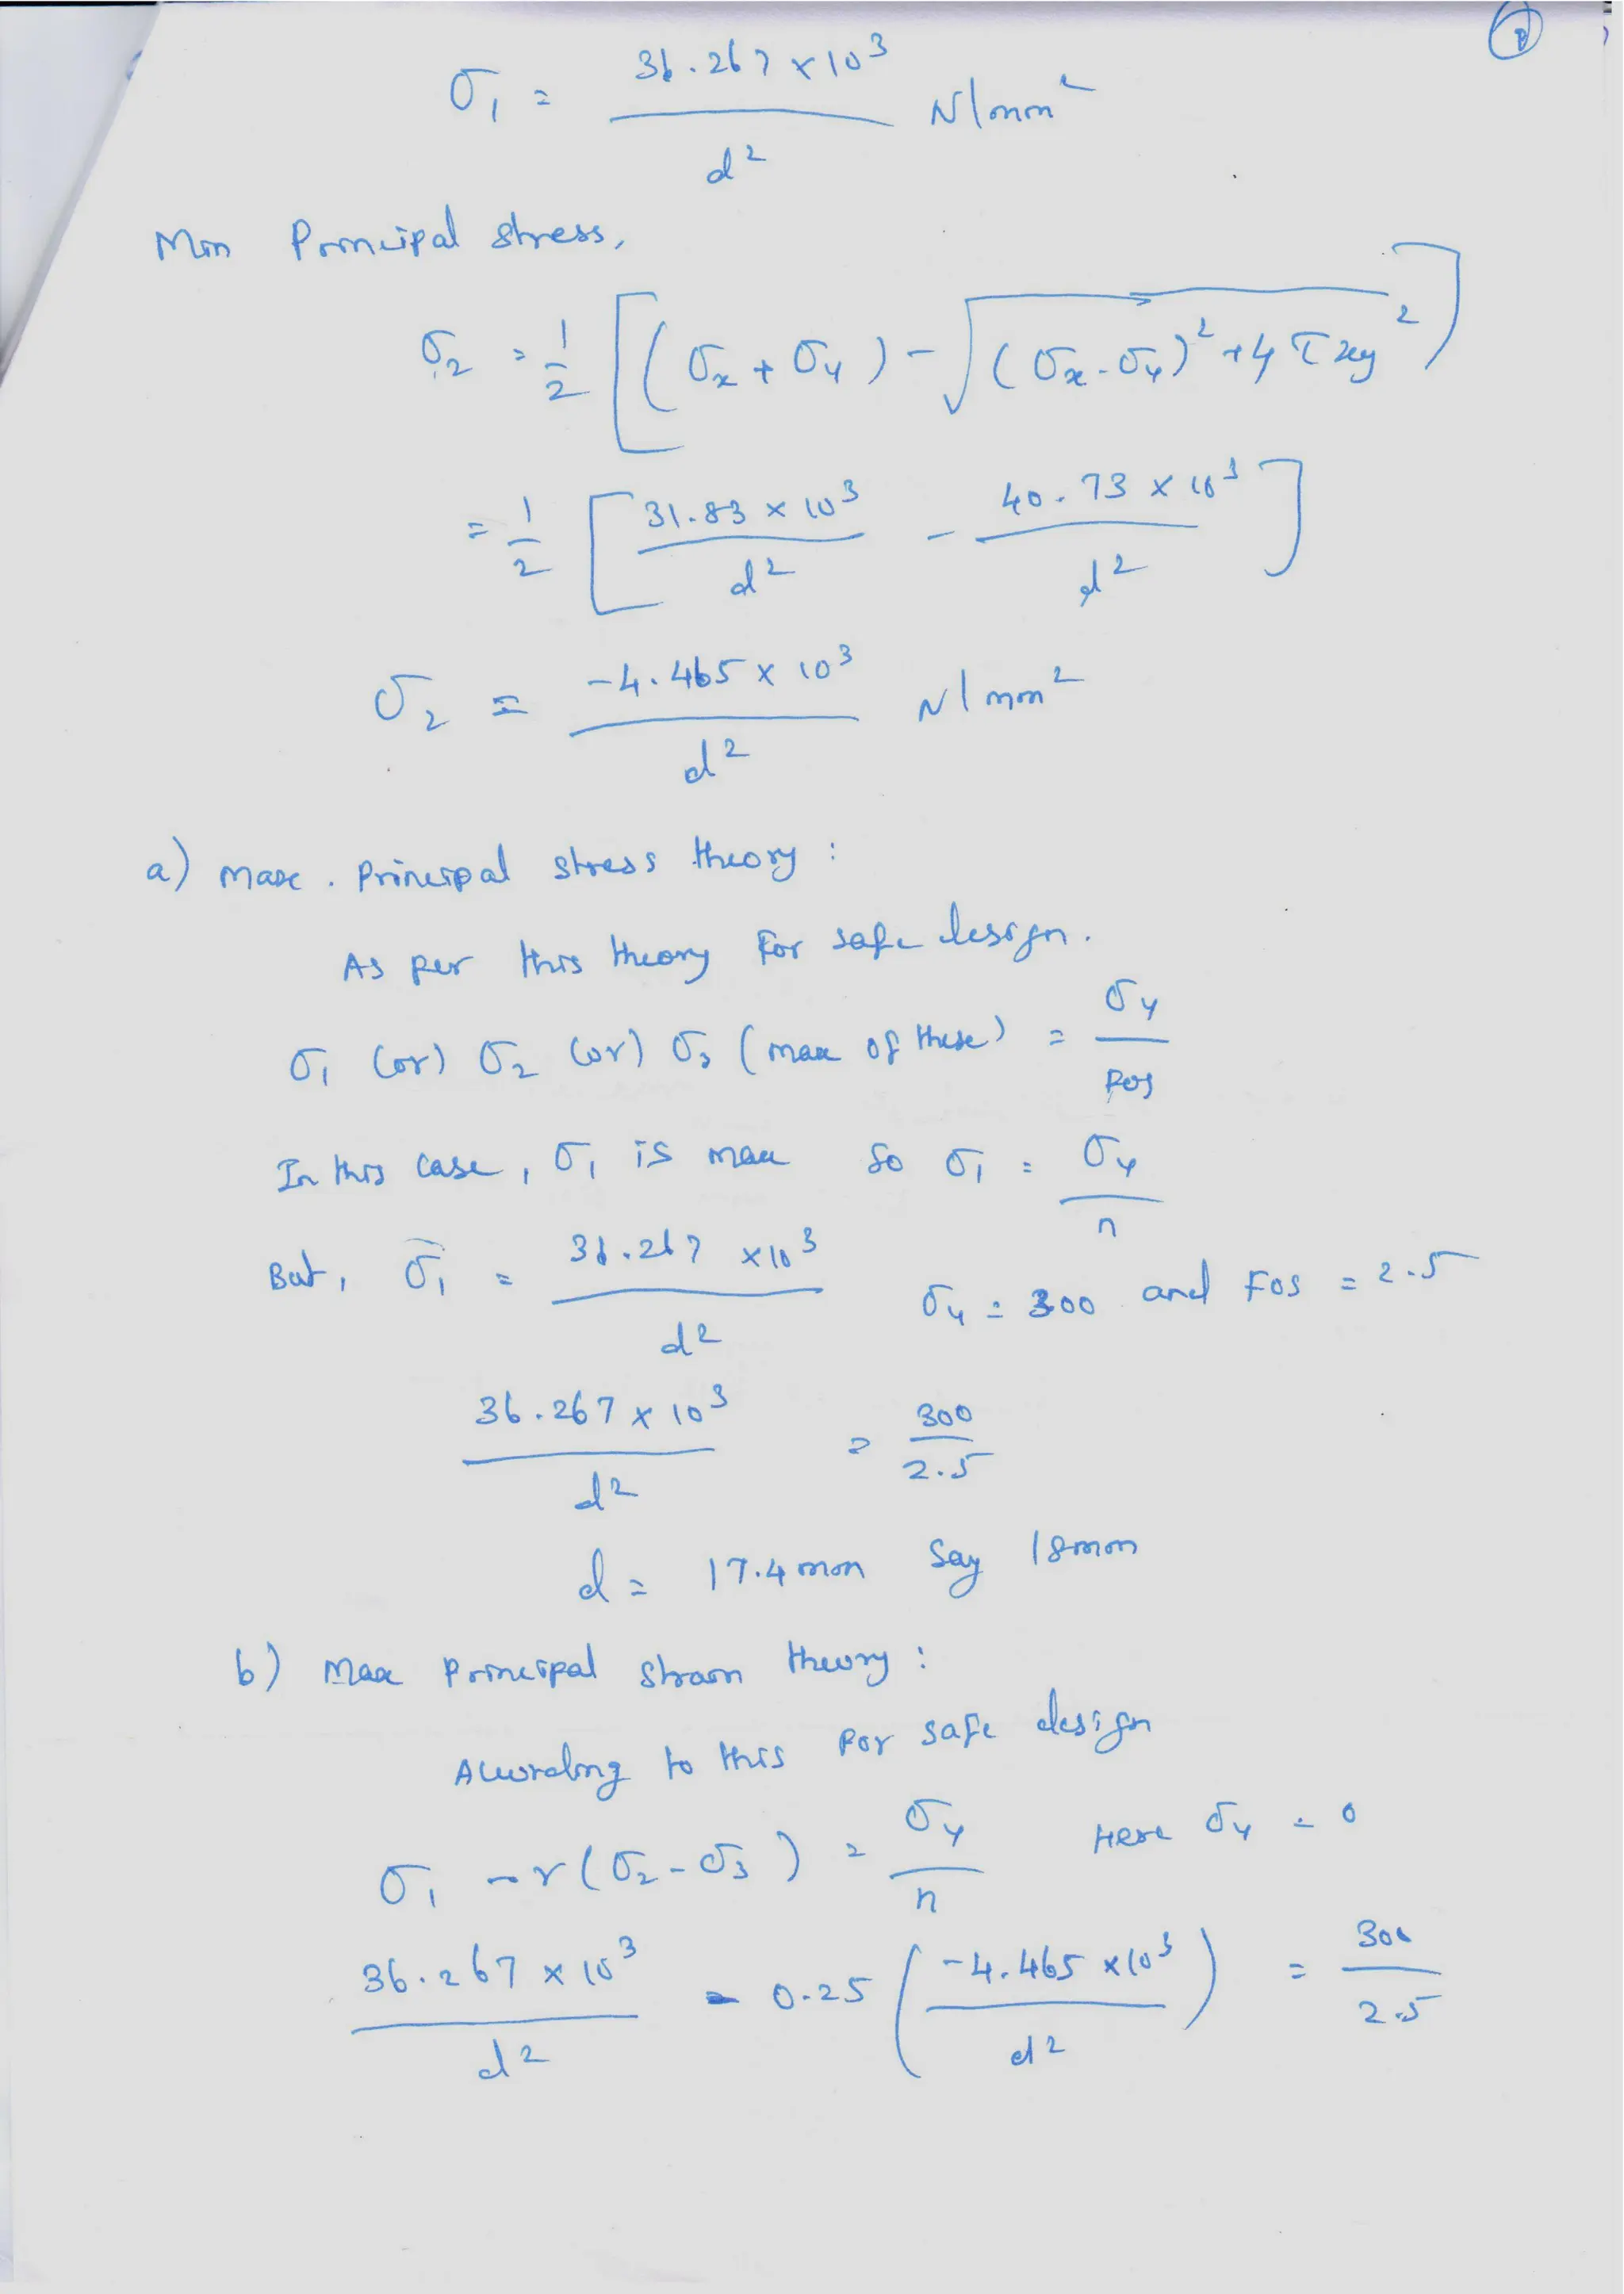 σ₁ = 36.267 × 10³ / d² N/mm²
Min Principal stress,
σ₂ = 1/2 [ (σx + σy) - √( (σx - σy)² + 4 τxy² ) ]
= 1/2 [ 31.83 × 10³ / d² - 40.73 × 10³ / d² ]
σ₂ = -4.465 × 10³ / d² N/mm²
a) Max. Principal stress theory :
As per this theory for safe design.
σ₁ (or) σ₂ (or) σ₃ (max of these) = σy / FOS
In this case, σ₁ is max So σ₁ = σy / n
But, σ₁ = 36.267 × 10³ / d² σy = 300 and FOS = 2.5
36.267 × 10³ / d² = 300 / 2.5
d = 17.4 mm Say 18mm
b) Max Principal strain theory :
According to this for safe design
σ₁ - ν(σ₂ - σ₃) = σy / n Here σy = 0
36.267 × 10³ / d² - 0.25 ( -4.465 × 10³ / d² ) = 300 / 2.5